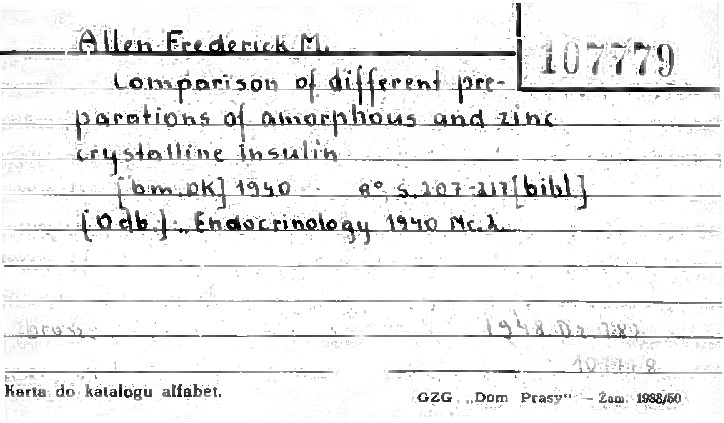 Allen Frederick M.
107779
Comparison of different pre-
parations of amorphous and zinc
crystalline insulin
[bm. DK] 1940 8°, s. 207-217 [bibl]
[Odb.]: „Endocrinology 1940 Nr. 2.
1948
Karta do katalogu alfabet.
GZG „Dom Prasy" — Zam. 1988/50